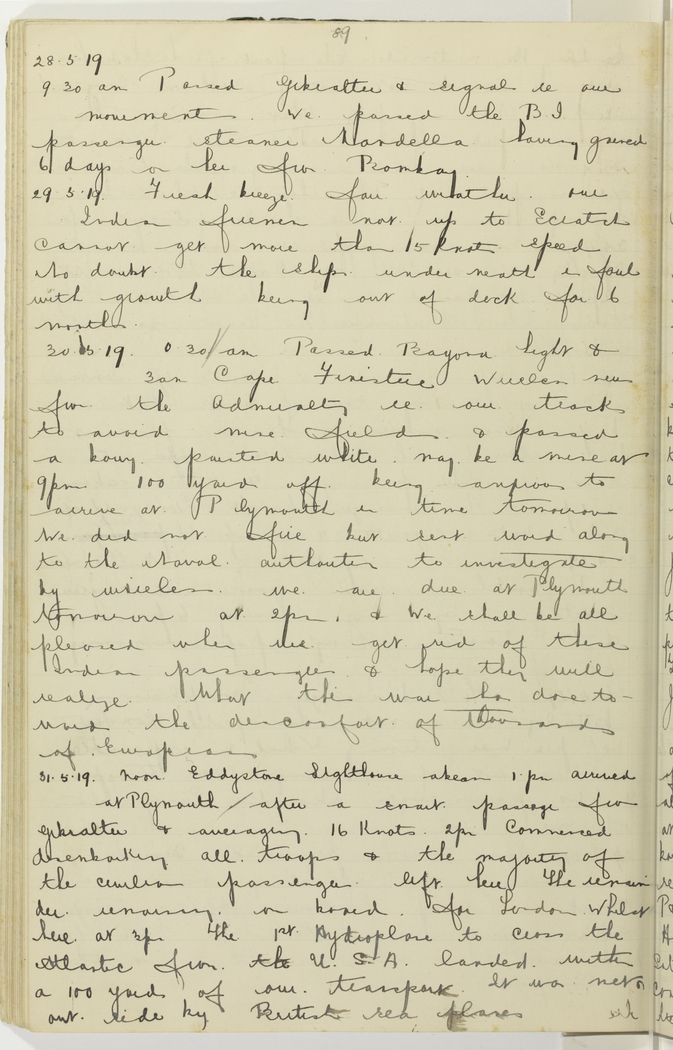 89
28.5.19
9 30 am Passed Gibralter & signal ie our
movements. We passed the B.I.
passenger steamer Mandella having gained
6 days on her from Bombay.
29.5.19. Fresh breeze. fair weather. our
Indian firemen not up to Scratch
cannot get more than 15 Knots speed
No doubt. the ships under neath is foul
with growth being out of dock for 6
months.
30.5.19. 0.30/am Passed Bayona light &
3am Cape Finisterre Wireless news
from the Admiralty ie. our track
to avoid mine field. & passed
a bouy. painted white. may be a mine at
9pm 100 yards off. being anxious to
arrive at Plymouth in time tomorrow
We did not fire but sent word along
to the Naval. authorities to investigate
by wireless. we are due at Plymouth
Tomorrow at 2pm, & We shall be all
pleased when we get rid of these
Indian passengers & hope they will
realize. What the war has done to-
ward the discomfort of thousands
of Europeans
31.5.19. noon Eddystone Lighthouse abeam 1.pm arrived
at Plymouth / after a smart passage from
Gibralter & averaging. 16 Knots. 2pm Commenced
disembarking all. troops & the majority of
the civilian passengers left here The remain
der. remaining. on board. for London Whilst
here at 3pm The 1st Hydroplane to cross the
Atlantic from. the U.S.A. landed. within
a 100 yards of our transport. It was met
out side by British sea planes